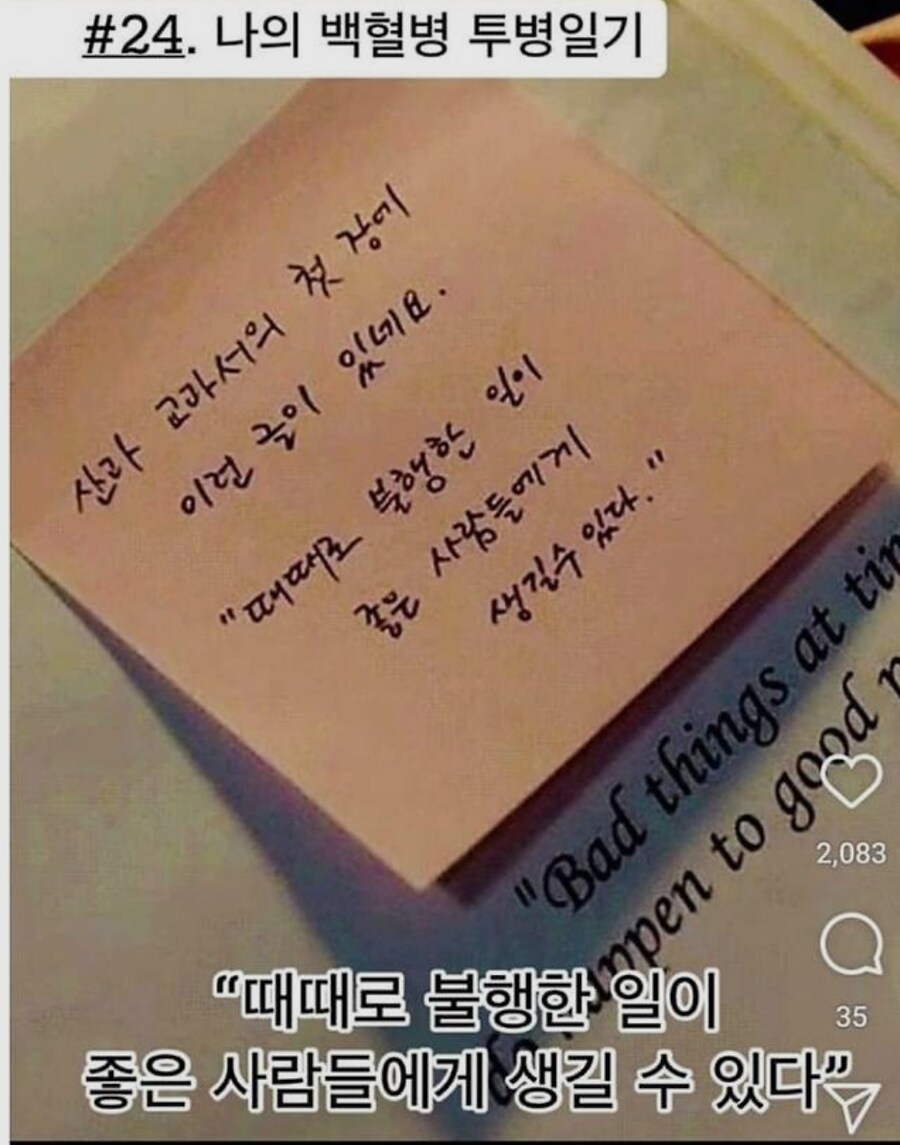 #24. 나의 백혈병 투병일기
산과 교과서의 첫 장에
이런 글이 있네요.
"때때로 불행한 일이
좋은 사람들에게
생길수 있다."
"Bad things at
to good
2,083
35
“때때로 불행한 일이
좋은 사람들에게 생길 수 있다”